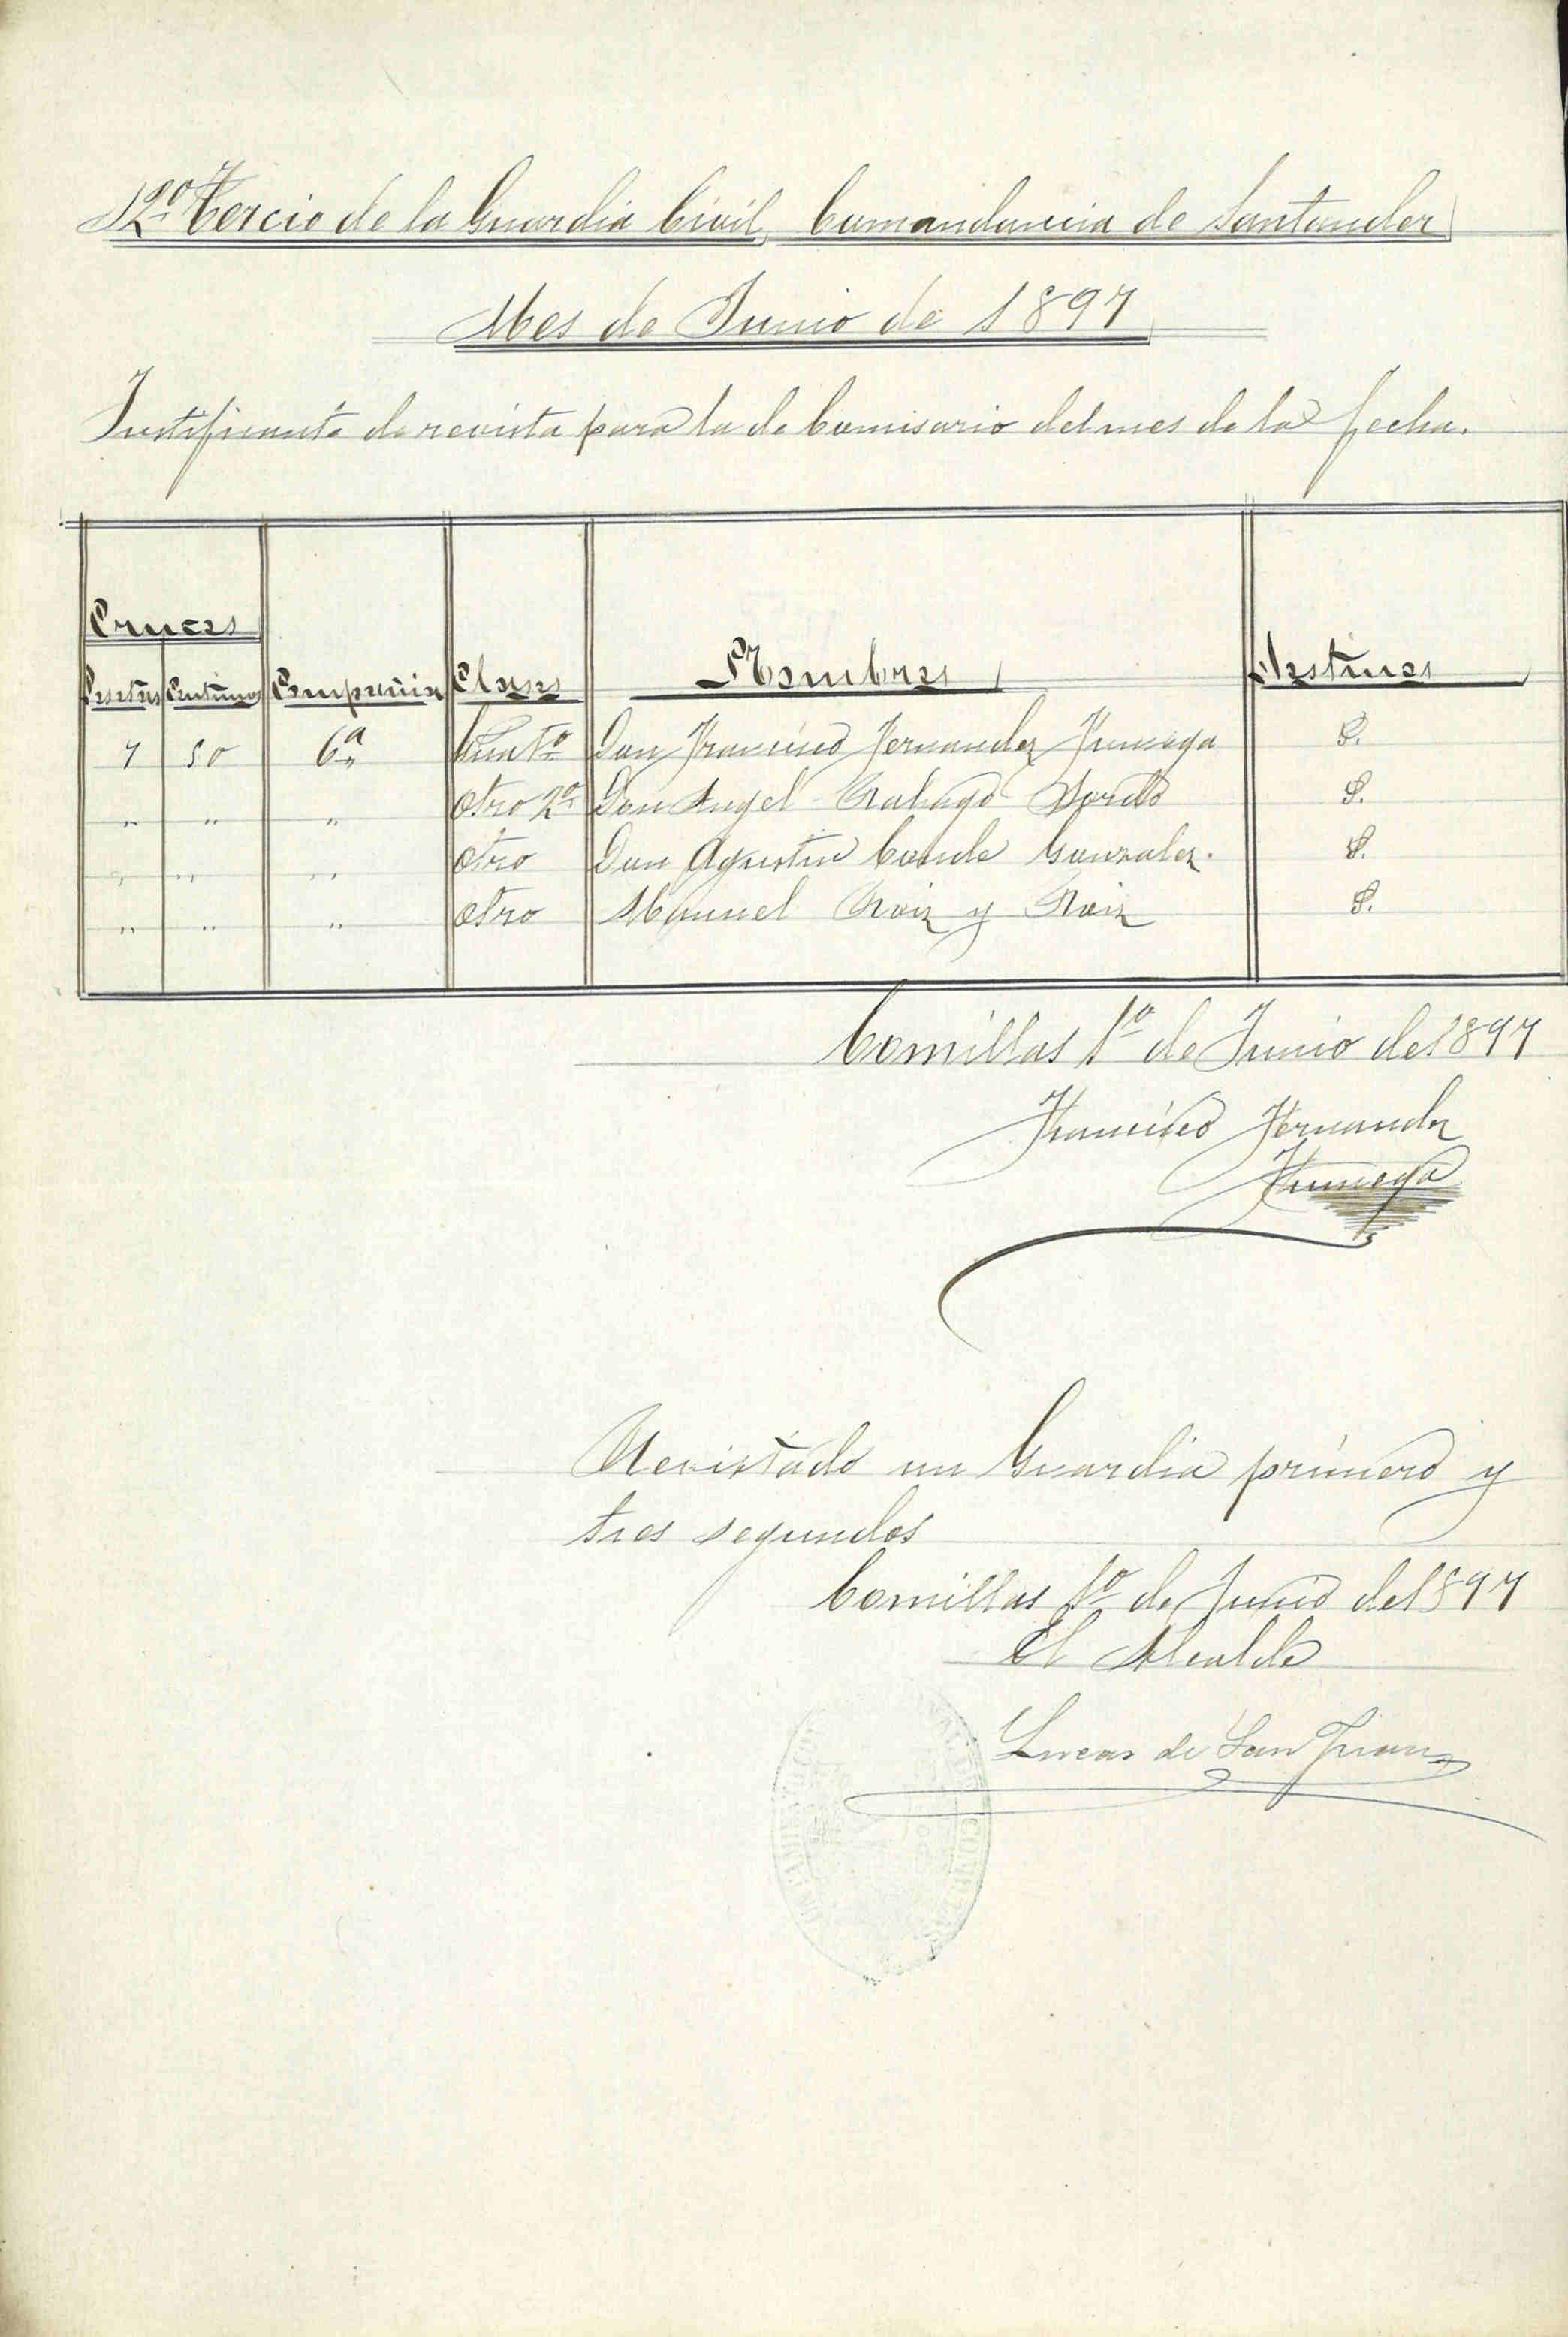 12º Tercio de la Guardia Civil, Comandancia de Santander
Mes de Junio de 1897
Justificante de revista para la de Comisario del mes de la fecha.
Cruces
Pesetas Centimos Compañia Clases Nombres Destinos
7 50 6ª Don Francisco Fernandez P.
" " " Otro 2º Don Angel P.
" " " Otro Don Agustin Conde Gonzalez. P.
" " " Otro Manuel Ruiz y Ruiz P.
Comillas 1º de Junio de 1897
Francisco Fernandez
Revistado un Guardia primero y
tres segundos
Comillas 1º de Junio de 1897
El Alcalde
Lucas de San Juan